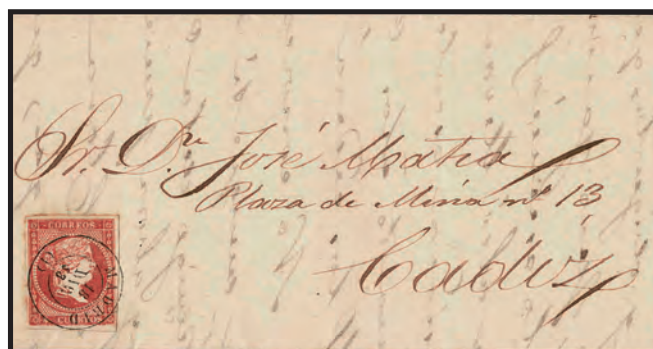 Sr. Dn José Matia
Plaza de Mina nº 13
Cadiz
CORREOS
MADRID